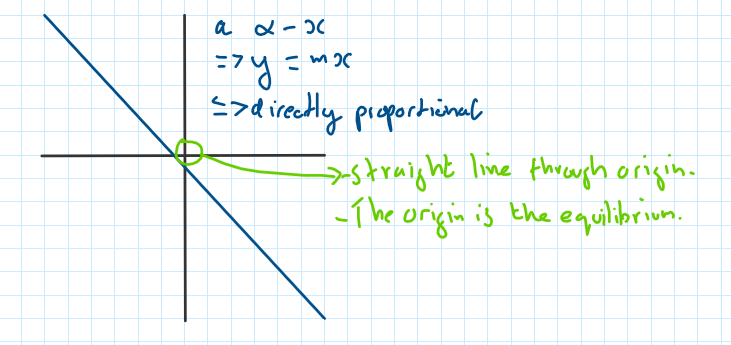 a α - x
=> y = mx
=> directly proportional
-> - straight line through origin.
- The origin is the equilibrium.